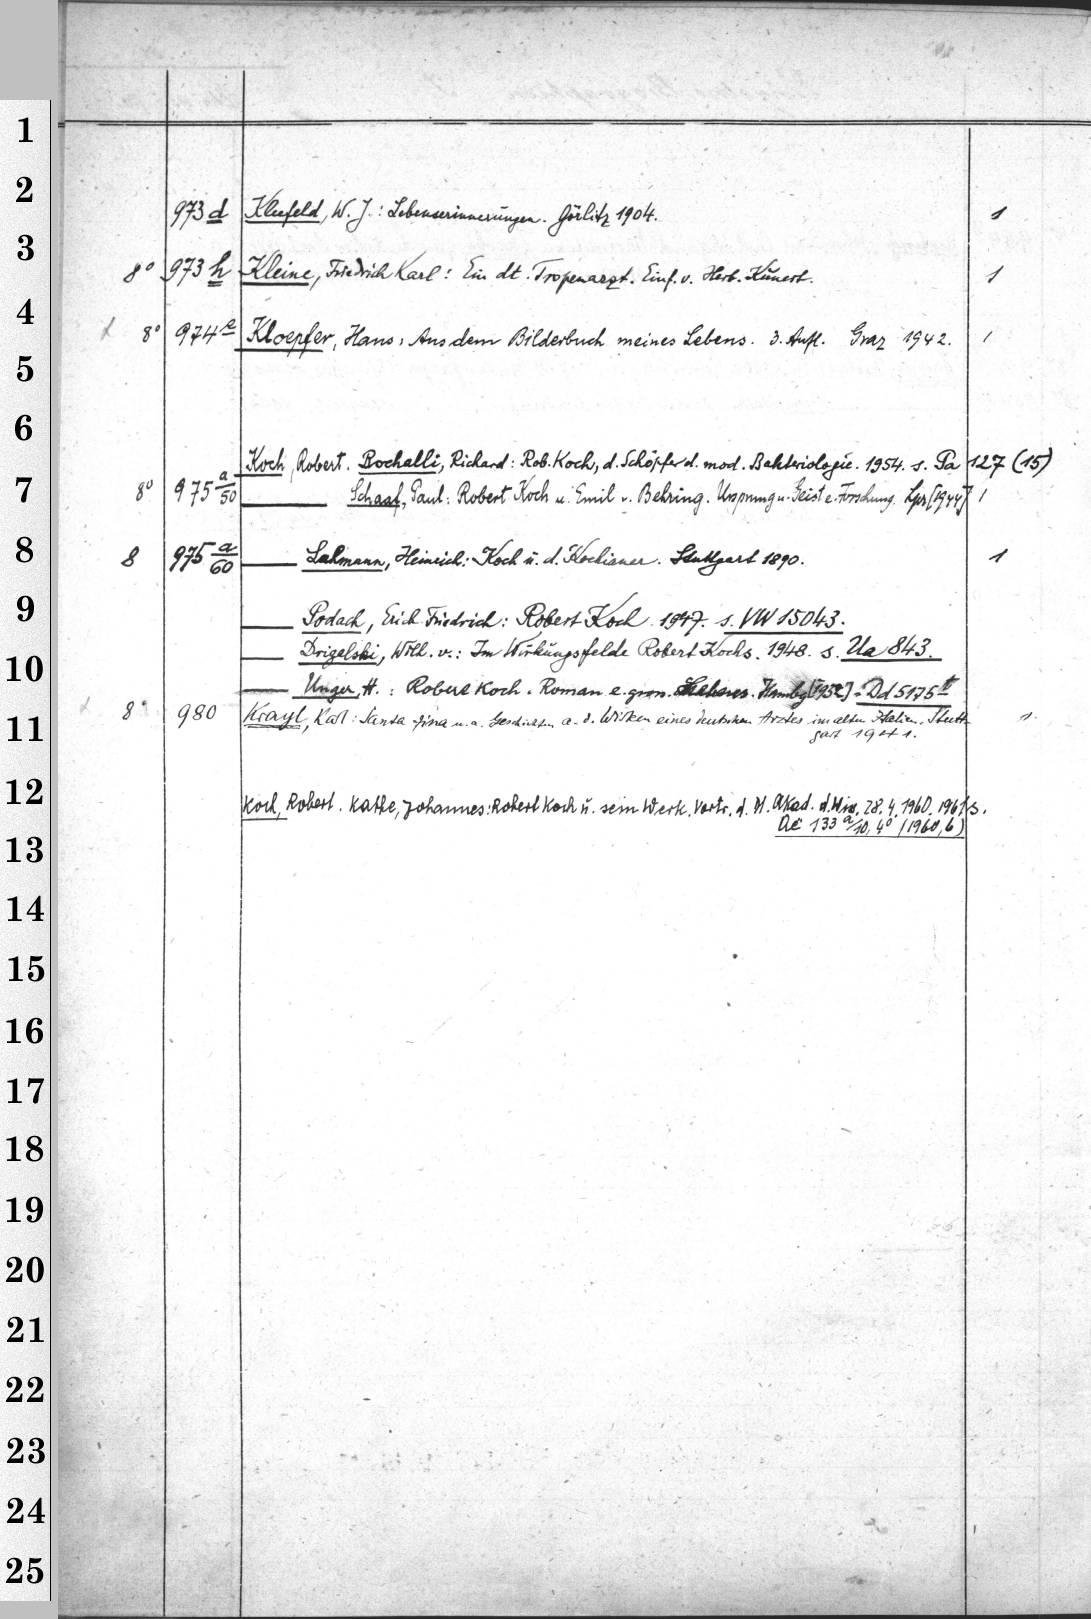 1
2
973 d Kleefeld, W. J.: Lebenserinnerungen. Görlitz 1904. 1
3
8° 973 h Kleine, Friedrich Karl: Ein dt. Tropenarzt. Einf. v. Herb. Kunert. 1
4
8° 974 e Kloepfer, Hans: Aus dem Bilderbuch meines Lebens. 3. Aufl. Graz 1942. 1
5
6
Koch, Robert. Bochalli, Richard: Rob. Koch, d. Schöpfer d. mod. Bakteriologie. 1954. s. Pa 127 (15)
7
8° 975 a/50 Schaaf, Paul: Robert Koch u. Emil v. Behring. Ursprung u. Geist e. Forschung. Lpz [1944] 1
8
8 975 a/60 Lahmann, Heinrich: Koch u. d. Kochianer. Stuttgart 1890. 1
9
Podach, Erich Friedrich: Robert Koch. 1947. s. VW 15043.
10
Drigalski, Will. v.: Im Wirkungsfelde Robert Kochs. 1948. s. Ua 843.
Unger, H.: Robert Koch. Roman e. gron. Lebens. Hambg [1952] = Dd 5175 t
11
8° 980 Krayl, Karl: Santa fina u. a. Geschichten a. d. Wirken eines deutschen Arztes im alten Italien. Stutt-
gart 1941. 1.
12
Koch, Robert. Kathe, Johannes: Robert Koch u. sein Werk. Vortr. d. D. Akad. d. Wiss. 28. 4. 1960. 1961 s.
Ac 133 a/10, 4° (1960, 6)
13
14
15
16
17
18
19
20
21
22
23
24
25